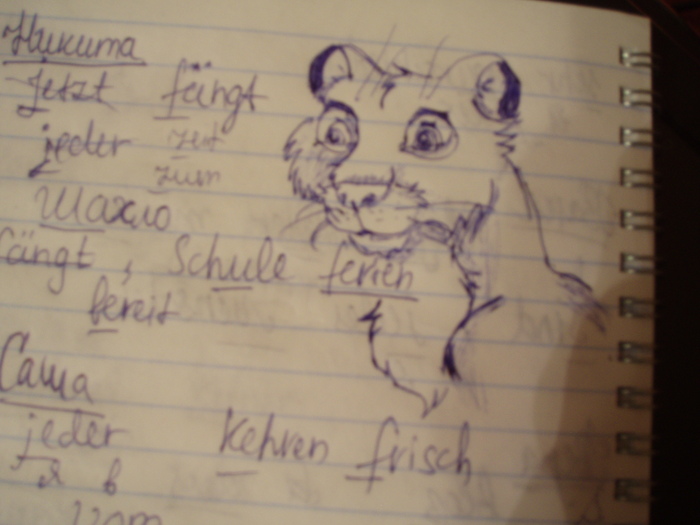 Никита
Jetzt fängt
jeder Zeit
zum
Шахло
fängt, Schule ferien
bereit
Саша
jeder kehren frisch
я в